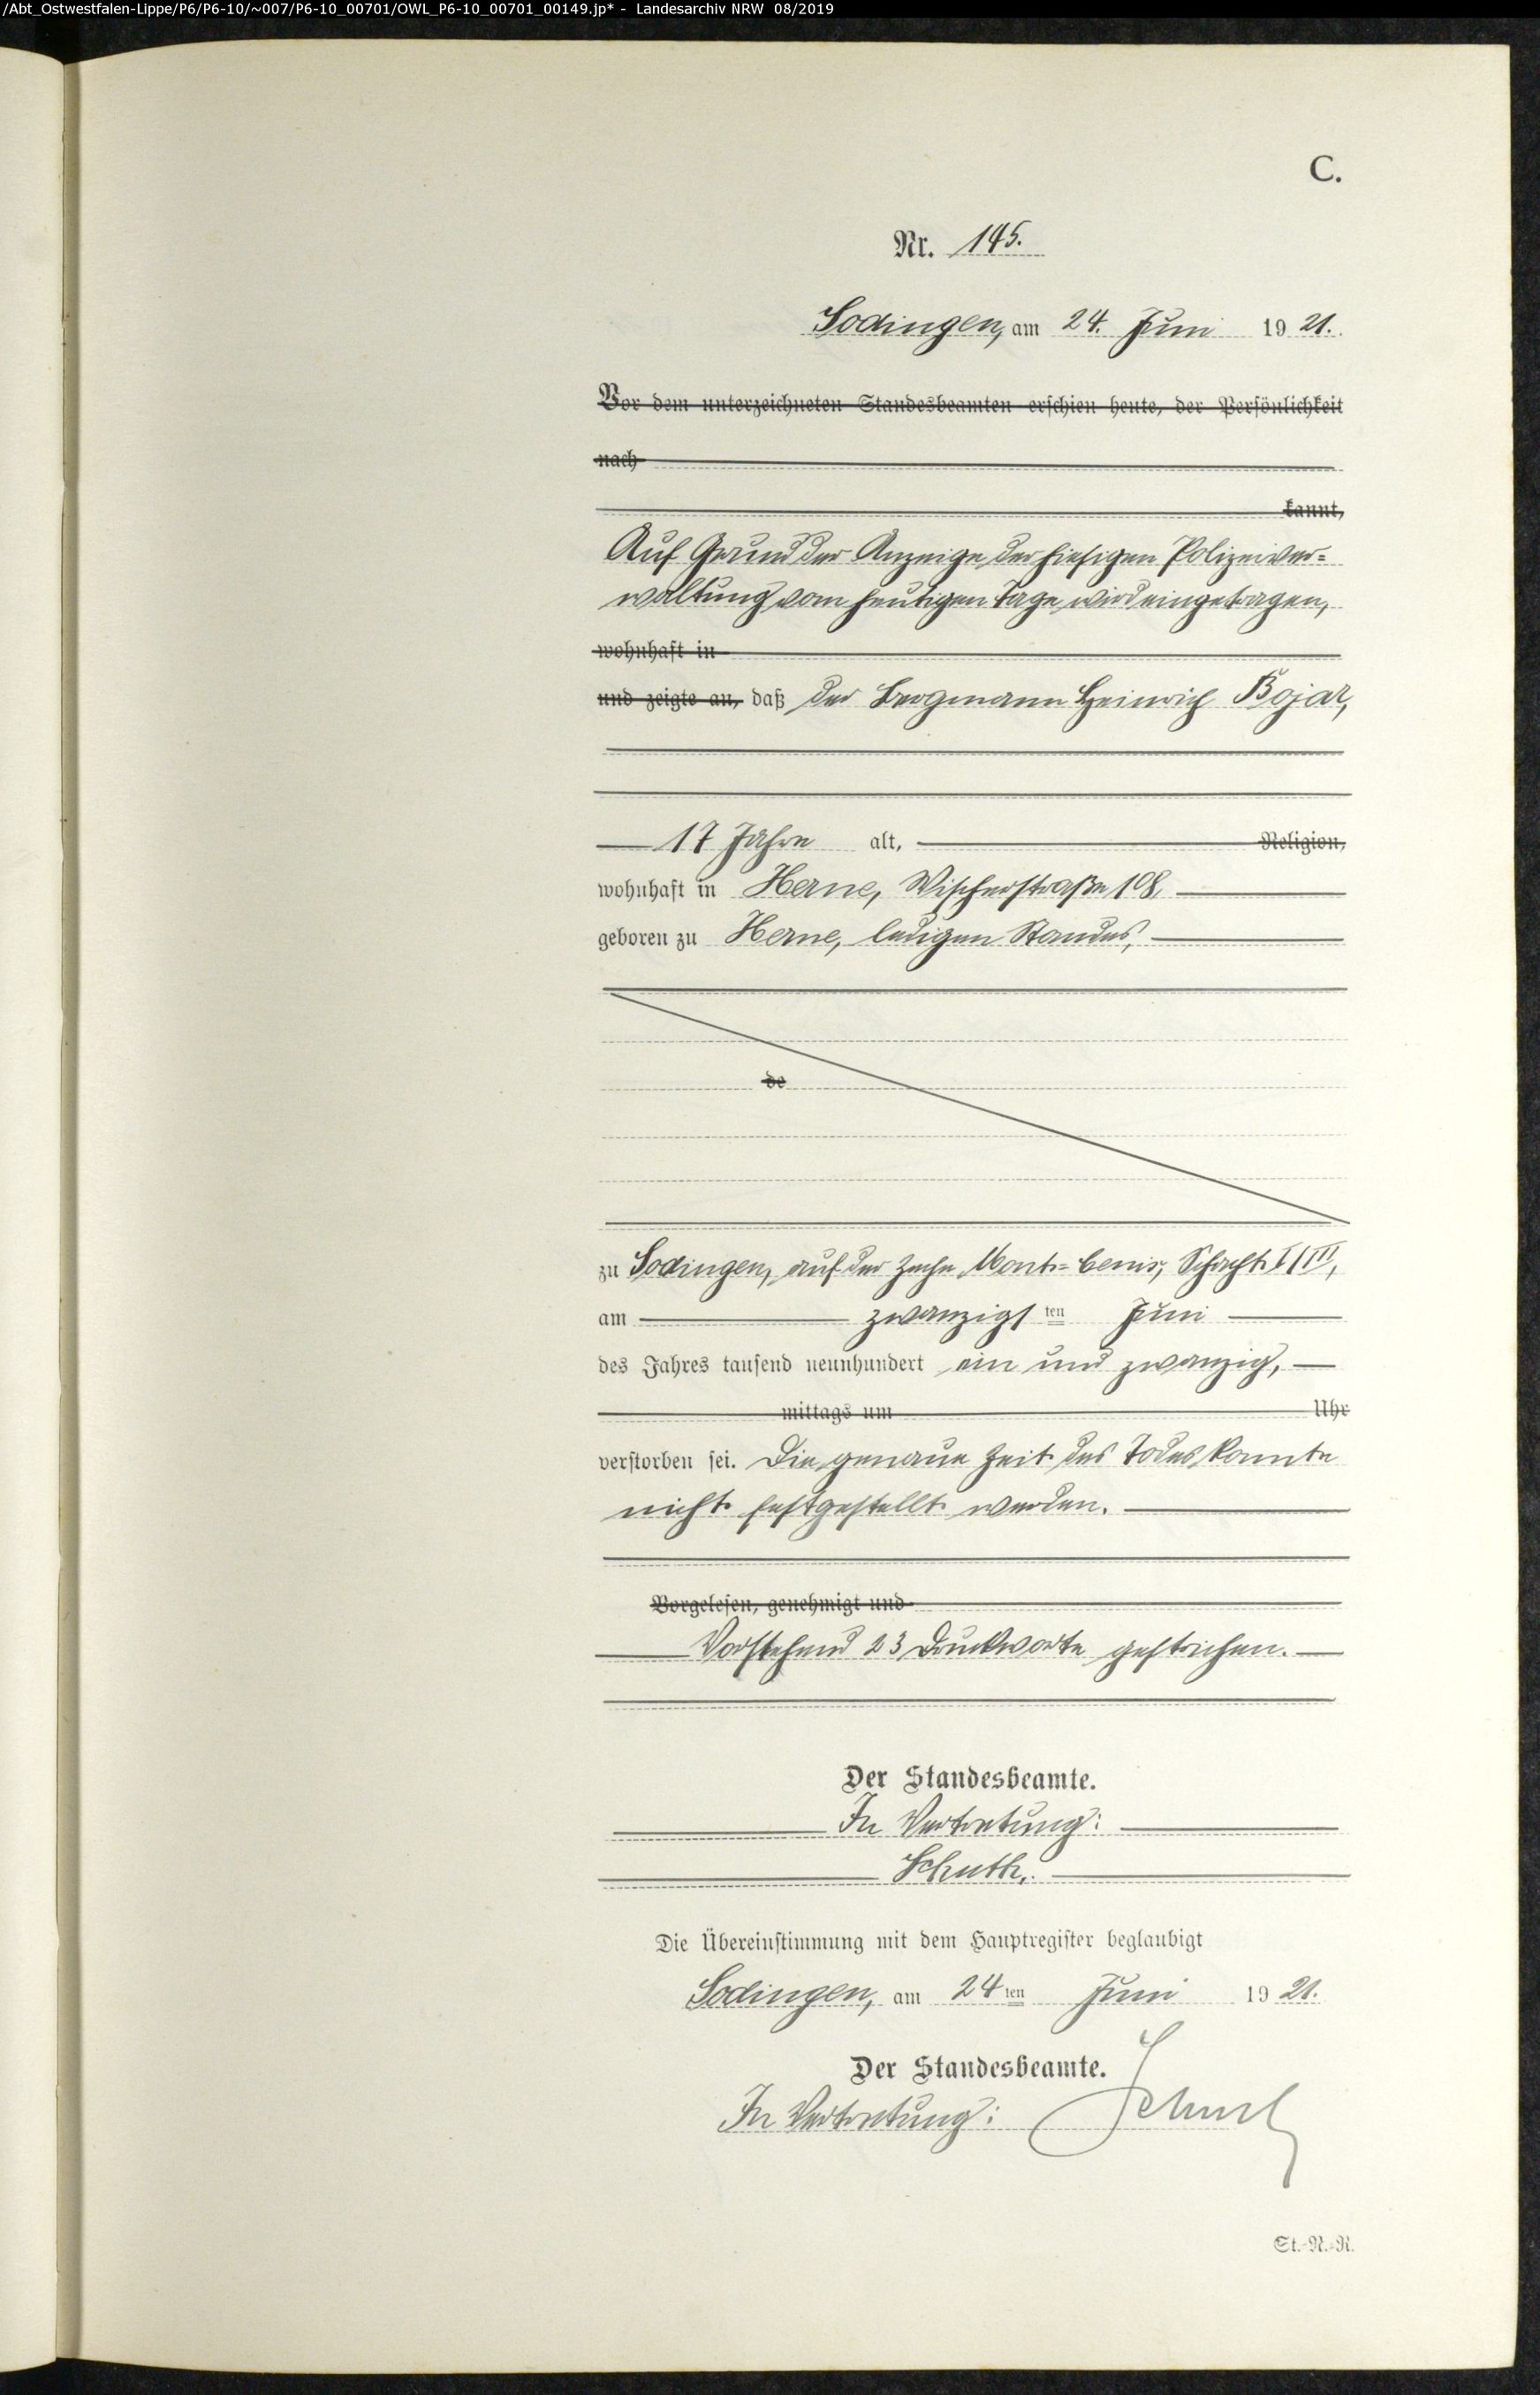 /Abt_Ostwestfalen-Lippe/P6/P6-10/~007/P6-10_00701/OWL_P6-10_00701_00149.jp* - Landesarchiv NRW 08/2019
C.
Nr. 145.
Sodingen, am 24. Juni 1921.
Vor dem unterzeichneten Standesbeamten erschien heute, der Persönlichkeit
nach
kannt,
Auf Grund der Anzeige der hiesigen Polizeiver=
waltung vom heutigen Tage wird eingetragen,
wohnhaft in
und zeigte an, daß der Bergmann Heinrich Bojar,
17 Jahre alt, Religion,
wohnhaft in Herne, Wischerstraße 108,
geboren zu Herne, ledigen Standes,
de
zu Sodingen, auf der Zeche Mont-Cenis, Schacht I/III,
am zwanzigsten Juni
des Jahres tausend neunhundert ein und zwanzig,
mittags um Uhr
verstorben sei. Die genaue Zeit des Todes konnte
nicht festgestellt werden.
Vorgelesen, genehmigt und
Vorstehend 23 Druckworte gestrichen.
Der Standesbeamte.
In Vertretung:
Schuth.
Die Übereinstimmung mit dem Hauptregister beglaubigt
Sodingen, am 24ten Juni 1921.
Der Standesbeamte.
In Vertretung:
St.-N.-R.